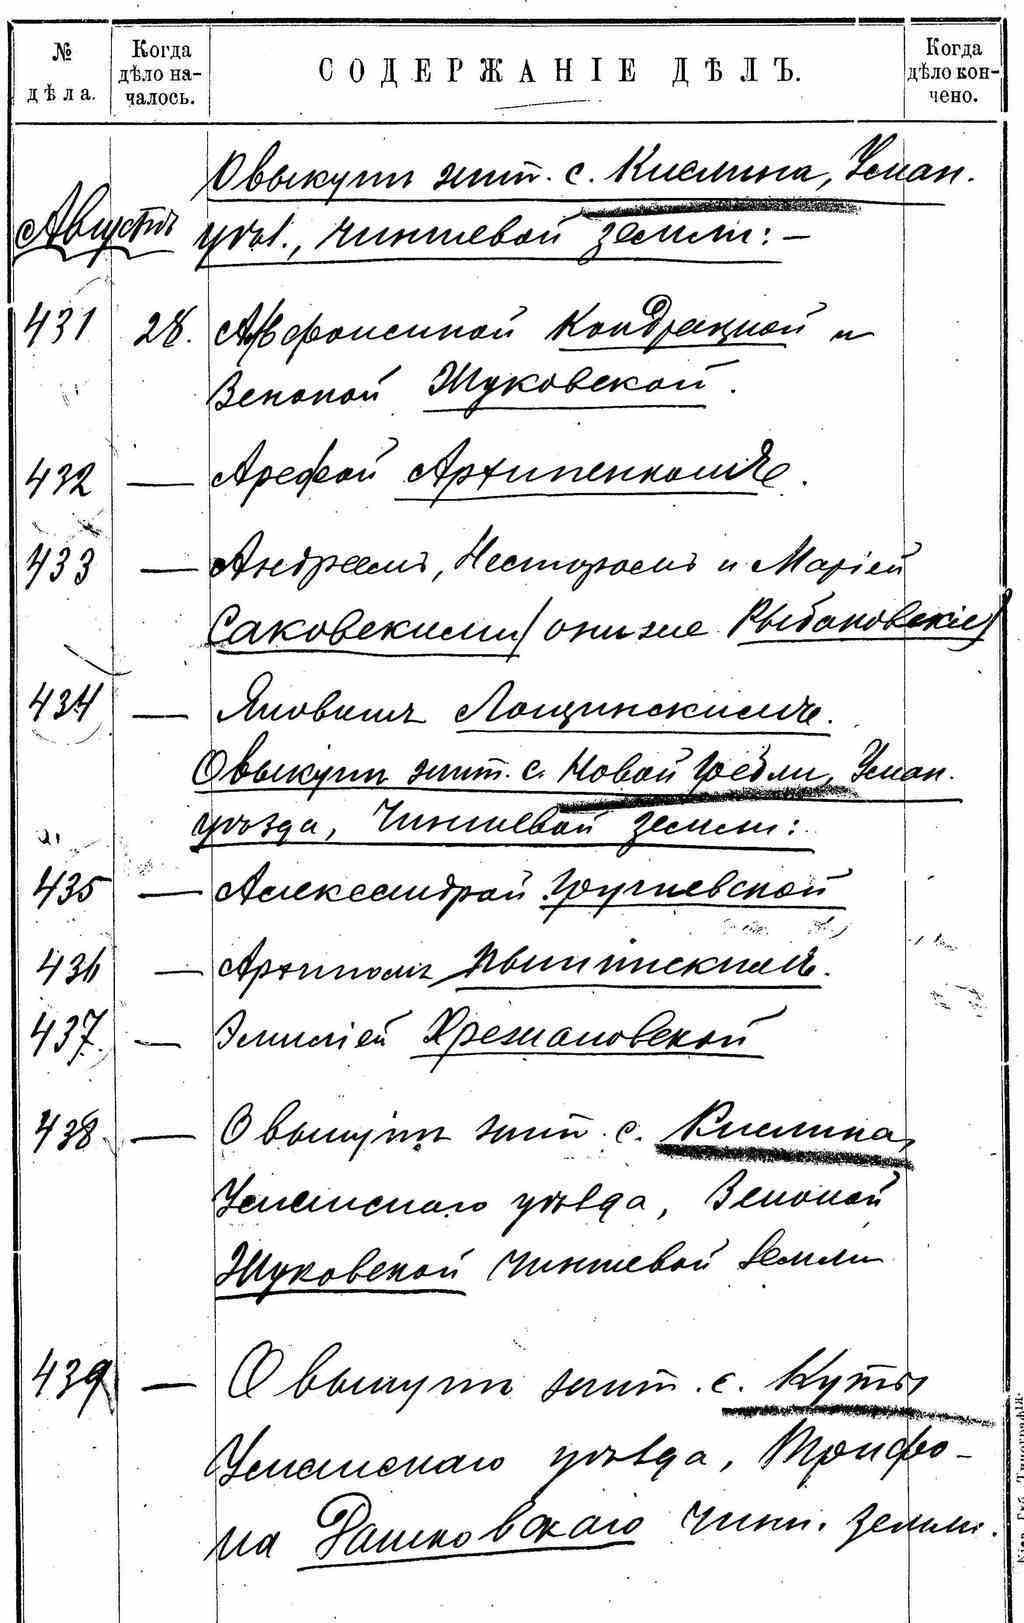 № дѣла.
Когда дѣло началось.
СОДЕРЖАНІЕ ДѢЛЪ.
Когда дѣло кончено.
О выкупѣ жит. с. Кислина, Уман.
Августъ уѣз., чиншевой земли: —
431 28. Афонсиной Кондрацкой и
Зеновой Жуковской.
432 — Арефой Архипенкомъ.
433 — Андреемъ, Несторомъ и Маріей
Саковскими (они же Рыбаковскіе)
434 — Яковымъ Лощинскимъ.
О выкупѣ жит. с. Новой Гребли, Уман.
уѣзда, Чиншевой земли:
435 — Александрой
436 — Архипомъ
437. — Эмиліей Хрежановской
438 — О выкупѣ жит. с. Кислина,
Уманскаго уѣзда, Зеновой
Жуковской чиншевой земли
439 — О выкупѣ жит. с. Куты
Уманскаго уѣзда, Трифо-
на Рашковскаго чин. земли.